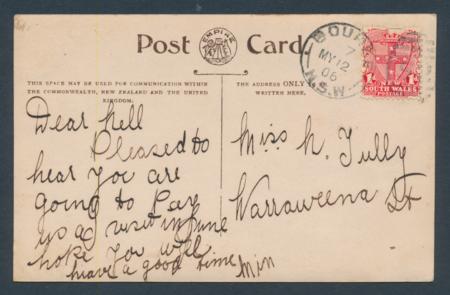 Post Card
EMPIRE
THIS SPACE MAY BE USED FOR COMMUNICATION WITHIN
THE COMMONWEALTH, NEW ZEALAND AND THE UNITED
KINGDOM.
THE ADDRESS ONLY
WRITTEN HERE.
BOUR
7
MY 12
06
N.S.W
NEW
SOUTH WALES
POSTAGE
Dear Nell
Pleased to
hear you are
going to Pay
us a visit in June
hope you will
have a good time Min
Miss N. Tully
Warraweena St